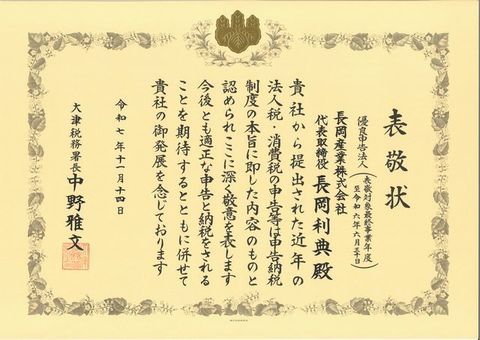 表敬状
優良申告法人
（表敬対象最終事業年度
至令和六年六月三十日）
長岡産業株式会社
代表取締役 長岡利典殿
貴社から提出された近年の
法人税・消費税の申告等は申告納税
制度の本旨に即した内容のものと
認められここに深く敬意を表します
今後とも適正な申告と納税をされる
ことを期待するとともに併せて
貴社の御発展を念じております
令和七年十二月十四日
大津税務署長 中野雅文